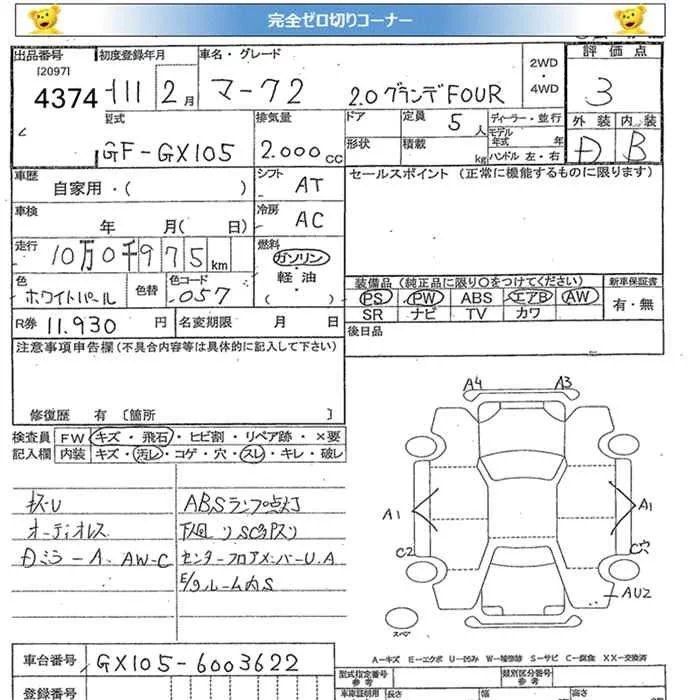 完全ゼロ切りコーナー
出品番号 初度登録年月 車名・グレード 2WD・4WD 評価点
[2097]
4374 H11 2月 マーク2 2.0グランデFOUR 3
型式 排気量 ドア 定員 5人 ディーラー・並行 外装 内装
モデル年式 年
GF-GX105 2.000cc 形状 積載 kg ハンドル 左・右 D B
車歴 シフト セールスポイント (正常に機能するものに限ります)
自家用・( ) AT
車検 冷房
年 月( 日) AC
走行 燃料
10万0千975km ガソリン・軽油
( )
装備品 (純正品に限り〇をつけてください) 新車保証書
色 色替 色コード
ホワイトパール 057
PS PW ABS エアB AW 有・無
SR ナビ TV カワ
R券 11.930円 名変期限 月 日 後日品
注意事項申告欄(不具合内容等は具体的に記入して下さい)
修復歴 有 [箇所 ]
検査員 FW キズ・飛石・ヒビ割・リペア跡・×要
記入欄 内装 キズ・汚レ・コゲ・穴・スレ・キレ・破レ
A4 A3
ABSランプ点灯
オーディオレス
Dミラ-A. AW-C センターフロアメンバーU.A
E/gルーム内S
A1 A1
C2
AU2
スペア
A-キズ E-エクボ U-凹み W-補修跡 S-サビ C-腐食 XX-交換済
車台番号 GX105-6003622
型式指定番号 参考 類別区分番号 参考
登録番号 車庫証明用 長さ 幅 高さ